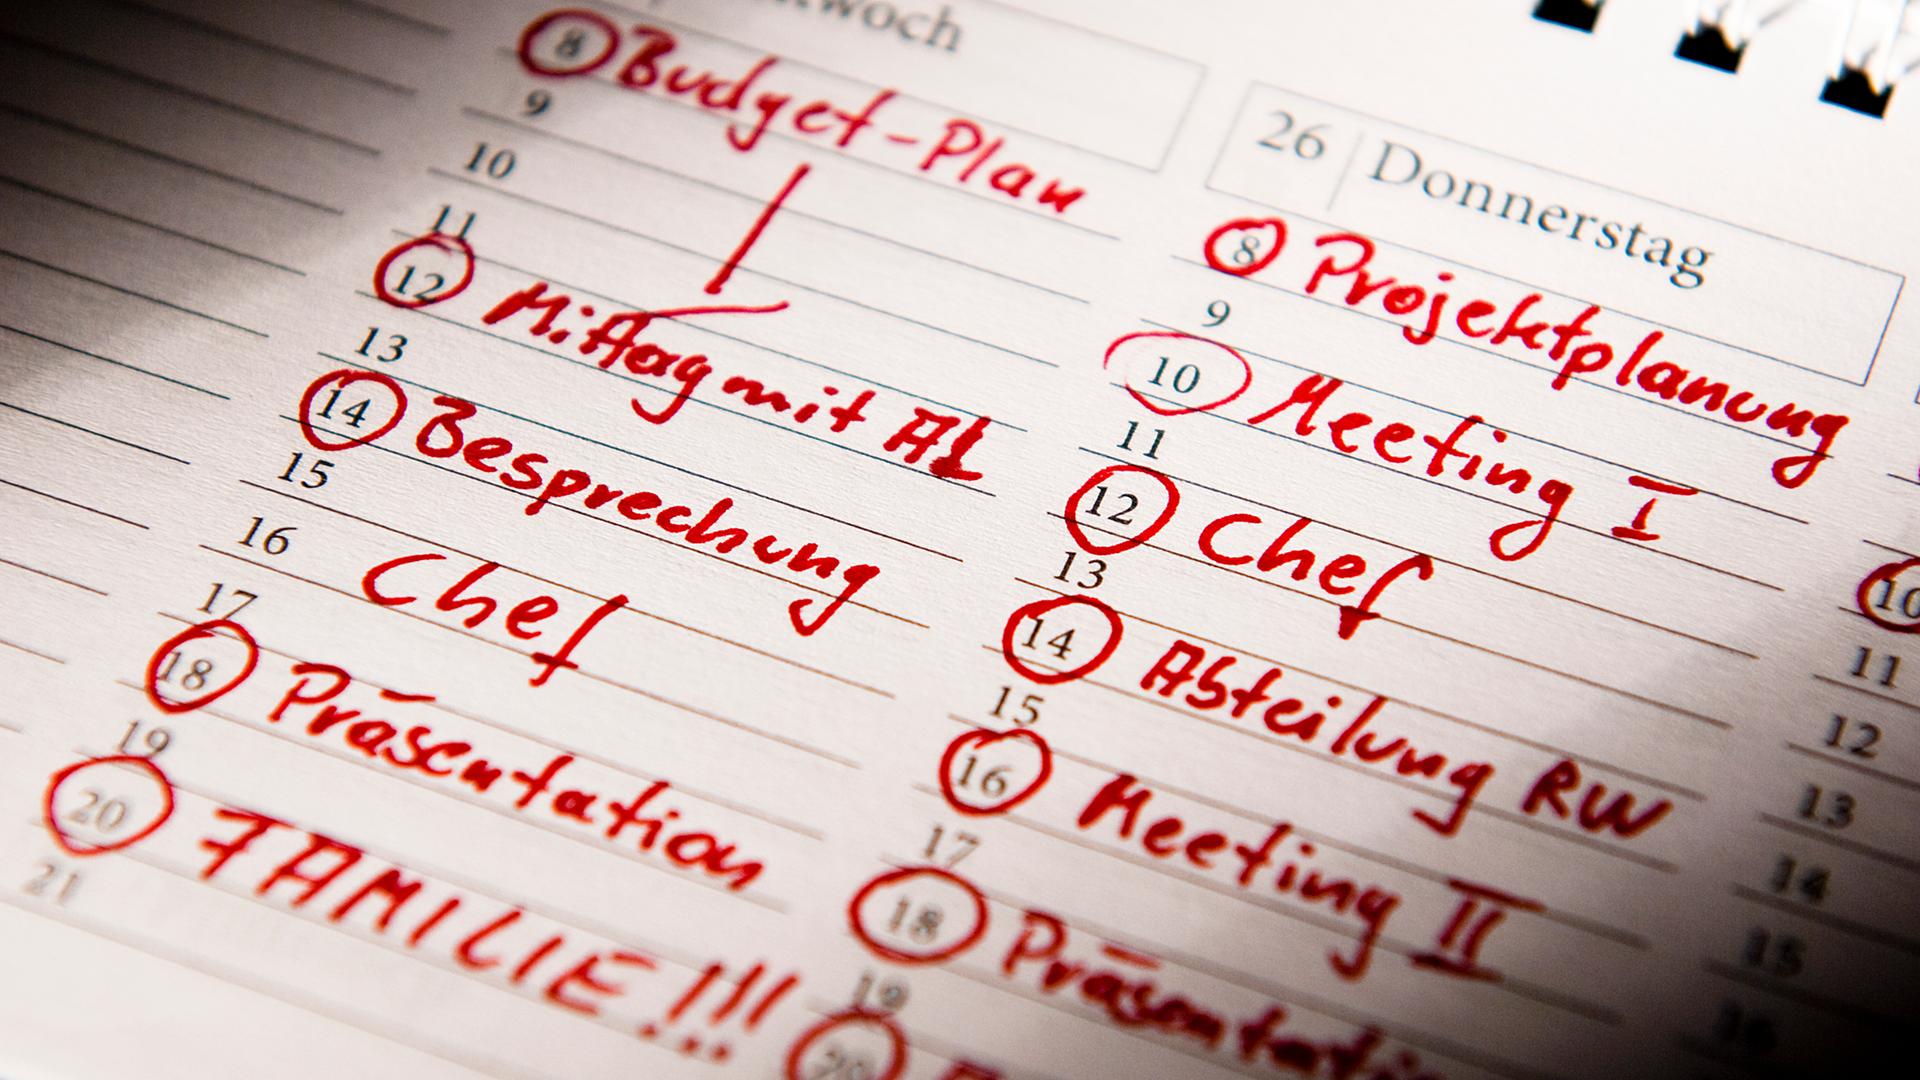 8 Budget-Plan
9
10
11
12 Mittag mit AL
13
14 Besprechung
15
16 Chef
17
18 Präsentation
19
20 FAMILIE!!!
21
26 Donnerstag
8 Projektplanung
9
10 Meeting I
11
12 Chef
13
14 Abteilung RW
15
16 Meeting II
17
18
19
20
10
11
12
13
14
15
16